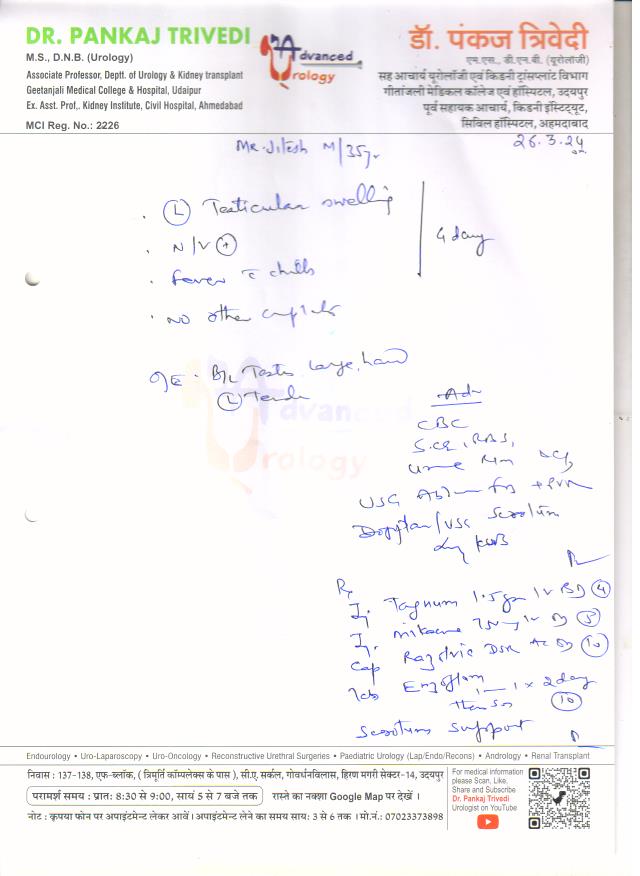 DR. PANKAJ TRIVEDI
M.S., D.N.B. (Urology)
Associate Professor, Deptt. of Urology & Kidney transplant
Geetanjali Medical College & Hospital, Udaipur
Ex. Asst. Prof,. Kidney Institute, Civil Hospital, Ahmedabad
MCI Reg. No.: 2226
Advanced
Urology
डॉ. पंकज त्रिवेदी
एम.एस., डी.एन.बी. (यूरोलॉजी)
सह आचार्य यूरोलॉजी एवं किडनी ट्रांसप्लांट विभाग
गीतांजली मेडिकल कॉलेज एवं हॉस्पिटल, उदयपुर
पूर्व सहायक आचार्य, किडनी इंस्टिट्यूट,
सिविल हॉस्पिटल, अहमदाबाद
26.3.24
Mr. Jitesh M/35yr
L Testicular swelling
N/V +
4 day
fever c chills
No other
O/E - B/L Testis large, hard
L Tende
Adv
CBC
S.CR, RBS,
Urine
USG + PVR
Doppler/USG Scrotum
KUB
Rx
Tagnum 1.5gm IV BD 4
IV 5
Cap DSR 10
Tab Enzoflam 1—1 x 2day
then 10
Scrotum Support
Advanced
Urology
Endourology • Uro-Laparoscopy • Uro-Oncology • Reconstructive Urethral Surgeries • Paediatric Urology (Lap/Endo/Recons) • Andrology • Renal Transplant
निवास : 137-138, एफ-ब्लॉक, ( त्रिमूर्ति कॉम्पलेक्स के पास ), सी.ए. सर्कल, गोवर्धनविलास, हिरण मगरी सेक्टर-14, उदयपुर
परामर्श समय : प्रातः 8:30 से 9:00, सायं 5 से 7 बजे तक रास्ते का नक्शा Google Map पर देखें ।
नोट : कृपया फोन पर अपाइंटमेन्ट लेकर आवें । अपाइंटमेन्ट लेने का समय सायः 3 से 6 तक । मो.नं.: 07023373898
For medical information
please Scan, Like,
Share and Subscribe
Dr. Pankaj Trivedi
Urologist on YouTube